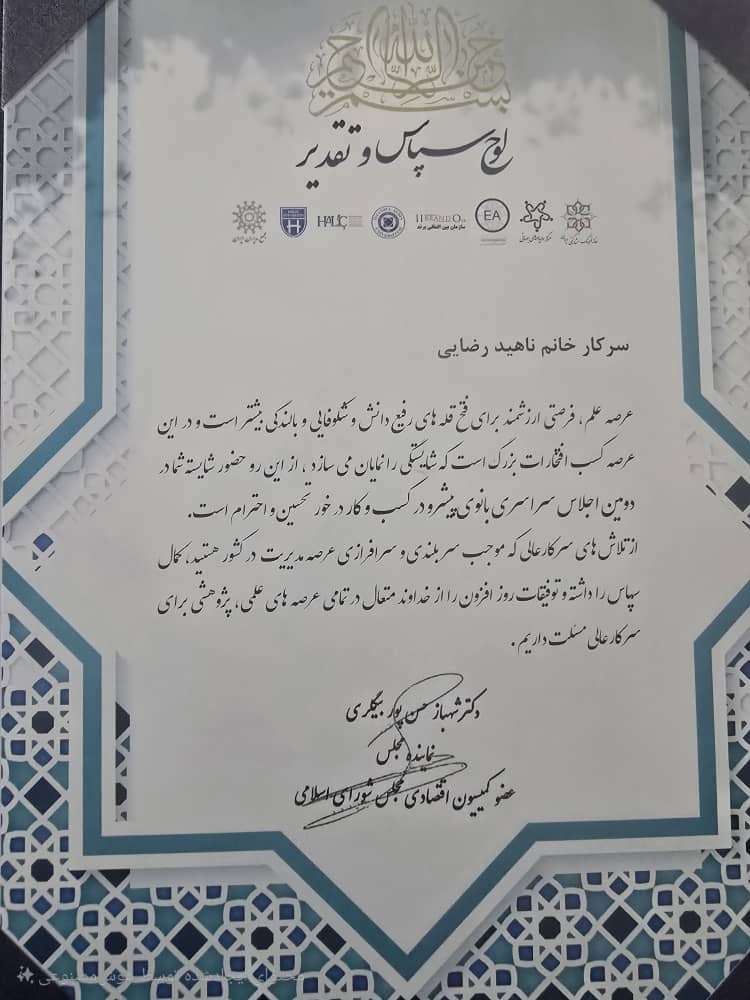 بسم الله الرحمن الرحیم
لوح سپاس و تقدیر
HALIÇ
BRAND
سازمان بین المللی برند
EA
سرکار خانم ناهید رضایی
عرصه علم، فرصتی ارزشمند برای فتح قله های رفیع دانش و شکوفایی و بالندگی بیشتر است و در این
عرصه کسب افتخارات بزرگ است که شایستگی را نمایان می سازد، از این رو حضور شایسته شما در
دومین اجلاس سراسری بانوی پیشرو در کسب و کار در خور تحسین و احترام است.
از تلاش های سرکارعالی که موجب سربلندی و سرافرازی عرصه مدیریت در کشور هستید، کمال
سپاس را داشته و توفیقات روز افزون را از خداوند متعال در تمامی عرصه های علمی، پژوهشی برای
سرکارعالی مسئلت داریم.
دکتر شهباز حسن پور بیگلری
نماینده مجلس
عضو کمیسیون اقتصادی مجلس شورای اسلامی
محتوای ایجادشده توسط هوش مصنوعی